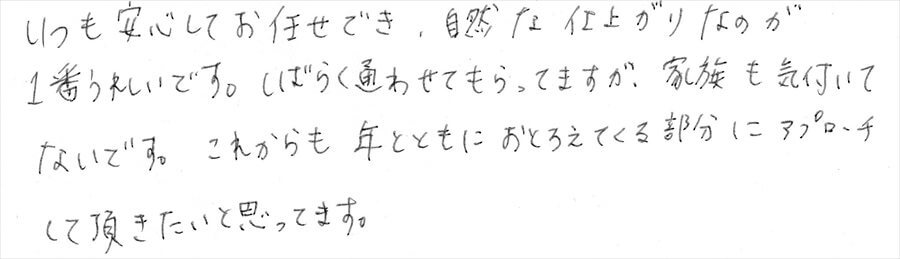 いつも安心してお任せでき、自然な仕上がりなのが
1番うれしいです。しばらく通わせてもらってますが、家族も気付いて
ないです。これからも年とともにおとろえてくる部分にアプローチ
して頂きたいと思ってます。